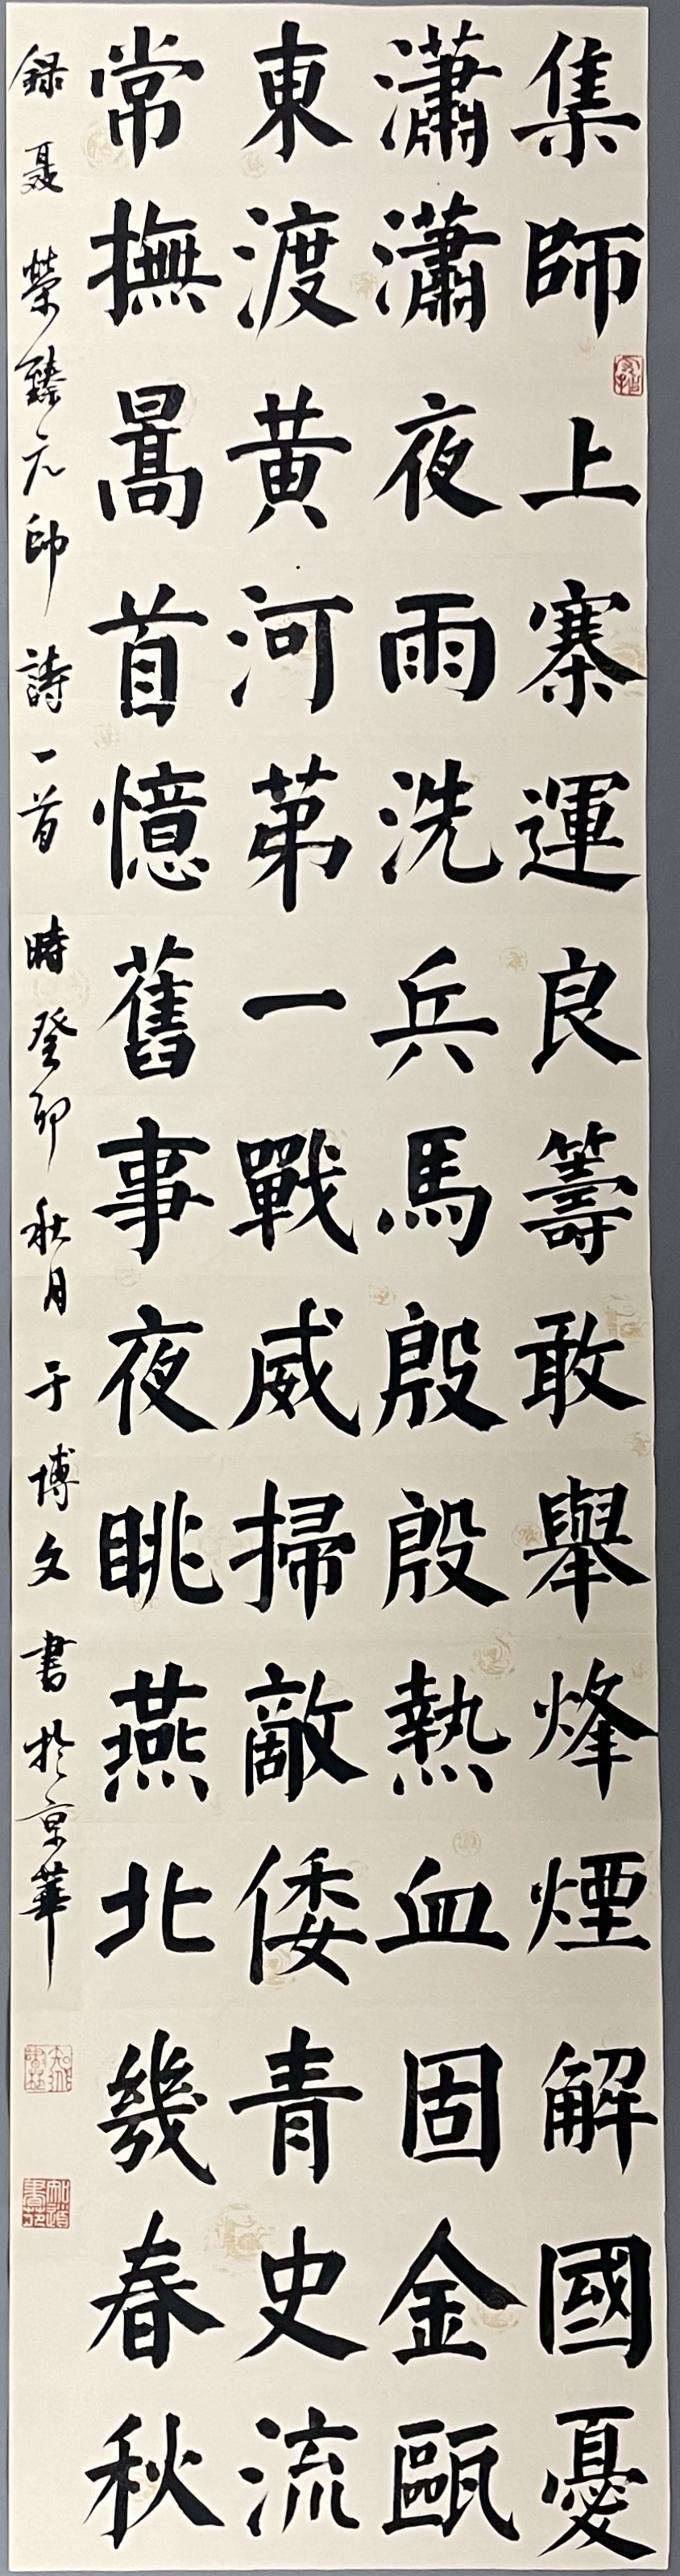 集師上寨運良籌敢舉烽煙解國憂
瀟瀟夜雨洗兵馬殷殷熱血固金甌
東渡黄河苐一戰威掃敵倭青史流
常撫暠首憶舊事夜眺燕北幾春秋
録聂榮臻元帥詩一首時癸卯秋月于博文書於京華